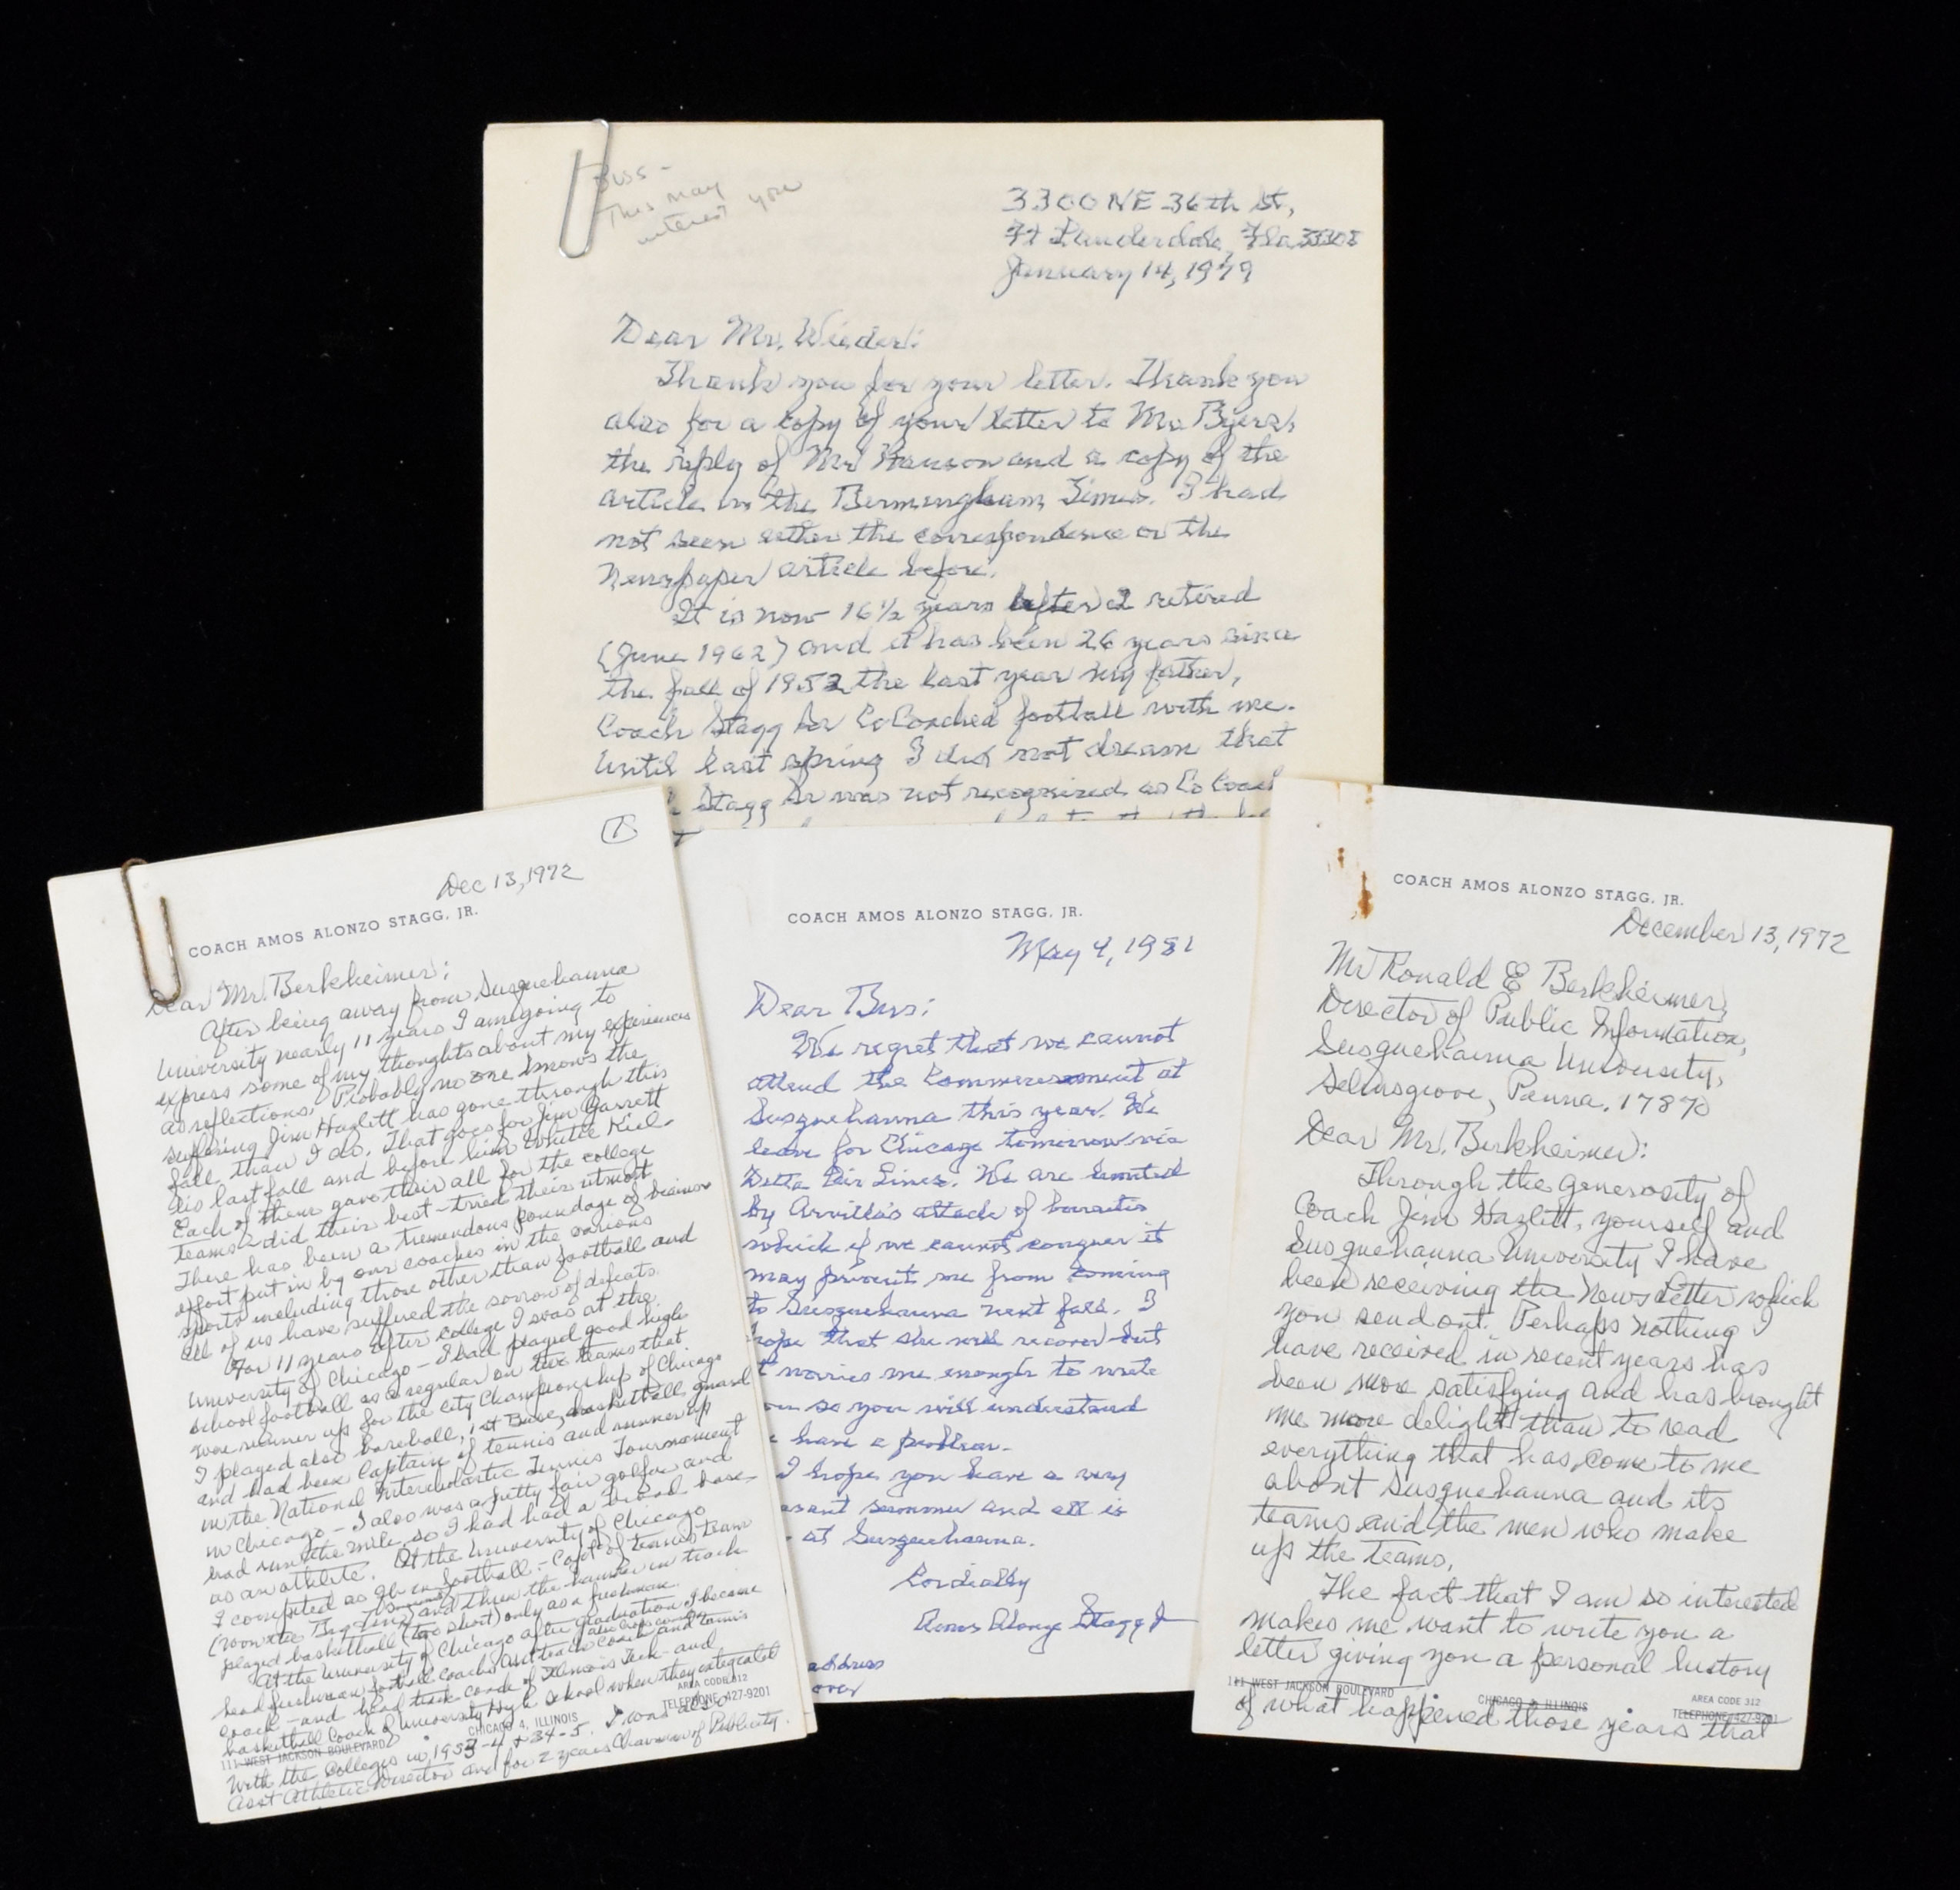 Buss -
This may
interest you
3300 NE 36th St,
Ft Lauderdale, Fla, 33308
January 14, 1979
Dear Mr. Wieder:
Thank you for your letter. Thank you
also for a copy of your letter to Mr. Byers,
the reply of Mr Hanson and a copy of the
article in the Bermingham Times. I had
not seen either the correspondence or the
Newspaper article before.
It is now 16½ years after I retired
(June 1962) and it has been 26 years since
the fall of 1952 the last year my father,
Coach Stagg Sr CoCoached football with me.
Until last spring I did not dream that
Stagg Sr was not recognized as Co Coach
1
Dec 13, 1972
COACH AMOS ALONZO STAGG, JR.
Dear Mr. Berkheimer:
After being away from Susquehanna
University nearly 11 years I am going to
express some of my thoughts about my experiences
as reflections. Probably no one knows the
suffering Jim Hazlett has gone through this
fall than I do. That goes for Jim Garrett
his last fall and before him Whitie Kiel-
Each of them gave their all for the college
teams - did their best - tried their utmost
There has been a tremendous poundage of
effort put in by our coaches in the various
sports including those other than football and
all of us have suffered the sorrow of defeats.
For 11 years after college I was at the
University of Chicago - I had played good high
school football as a regular on two teams that
were runner ups for the city Championship of Chicago
I played also baseball, 1st Base, basketball, guard
and had been Captain of tennis and runner up
in the National Interscholastic Tennis Tournament
in Chicago - I also was a pretty fair golfer and
had run the mile so I had had a broad base
as an athlete. At the University of Chicago
I competed as QB in football - Capt of tennis team
(won the Big Ten) and threw the hammer in track
played basketball (too short) only as a freshman.
At the University of Chicago after graduation I became
head freshman football coach, asst track coach and tennis
coach - and head track coach of Illinois Tech - and
basketball Coach of University High School when they integrated
111 WEST JACKSON BOULEVARD
CHICAGO 4, ILLINOIS
AREA CODE 312
TELEPHONE 427-9201
with the Colleges in 1933-4 + 34-5. I was also
asst Athletic Director and for 2 years Chairman of Publicity.
COACH AMOS ALONZO STAGG, JR.
May 4, 1981
Dear Buss:
We regret that we cannot
attend the Commencement at
Susquehanna this year. We
leave for Chicago tomorrow via
Delta Air Lines. We are limited
by Arvilla's attack of bursitis
which if we cannot conquer it
may prevent me from coming
to Susquehanna next fall. I
hope that she will recover but
it worries me enough to write
you so you will understand
have a problem.
I hope you have a very
pleasant summer and all is
at Susquehanna.
Cordially
Amos Alonzo Stagg Jr
address
over
COACH AMOS ALONZO STAGG, JR.
December 13, 1972
Mr Ronald E Berkheimer,
Director of Public Information,
Susquehanna University,
Selinsgrove, Penna. 17870
Dear Mr. Berkheimer:
Through the generosity of
Coach Jim Hazlett, yourself and
Susquehanna University I have
been receiving the News Letter which
you send out. Perhaps nothing I
have received in recent years has
been more satisfying and has brought
me more delight than to read
everything that has come to me
about Susquehanna and its
teams and the men who make
up the teams.
The fact that I am so interested
makes me want to write you a
letter giving you a personal history
111 WEST JACKSON BOULEVARD
CHICAGO 4, ILLINOIS
AREA CODE 312
TELEPHONE 427-9201
of what happened those years that